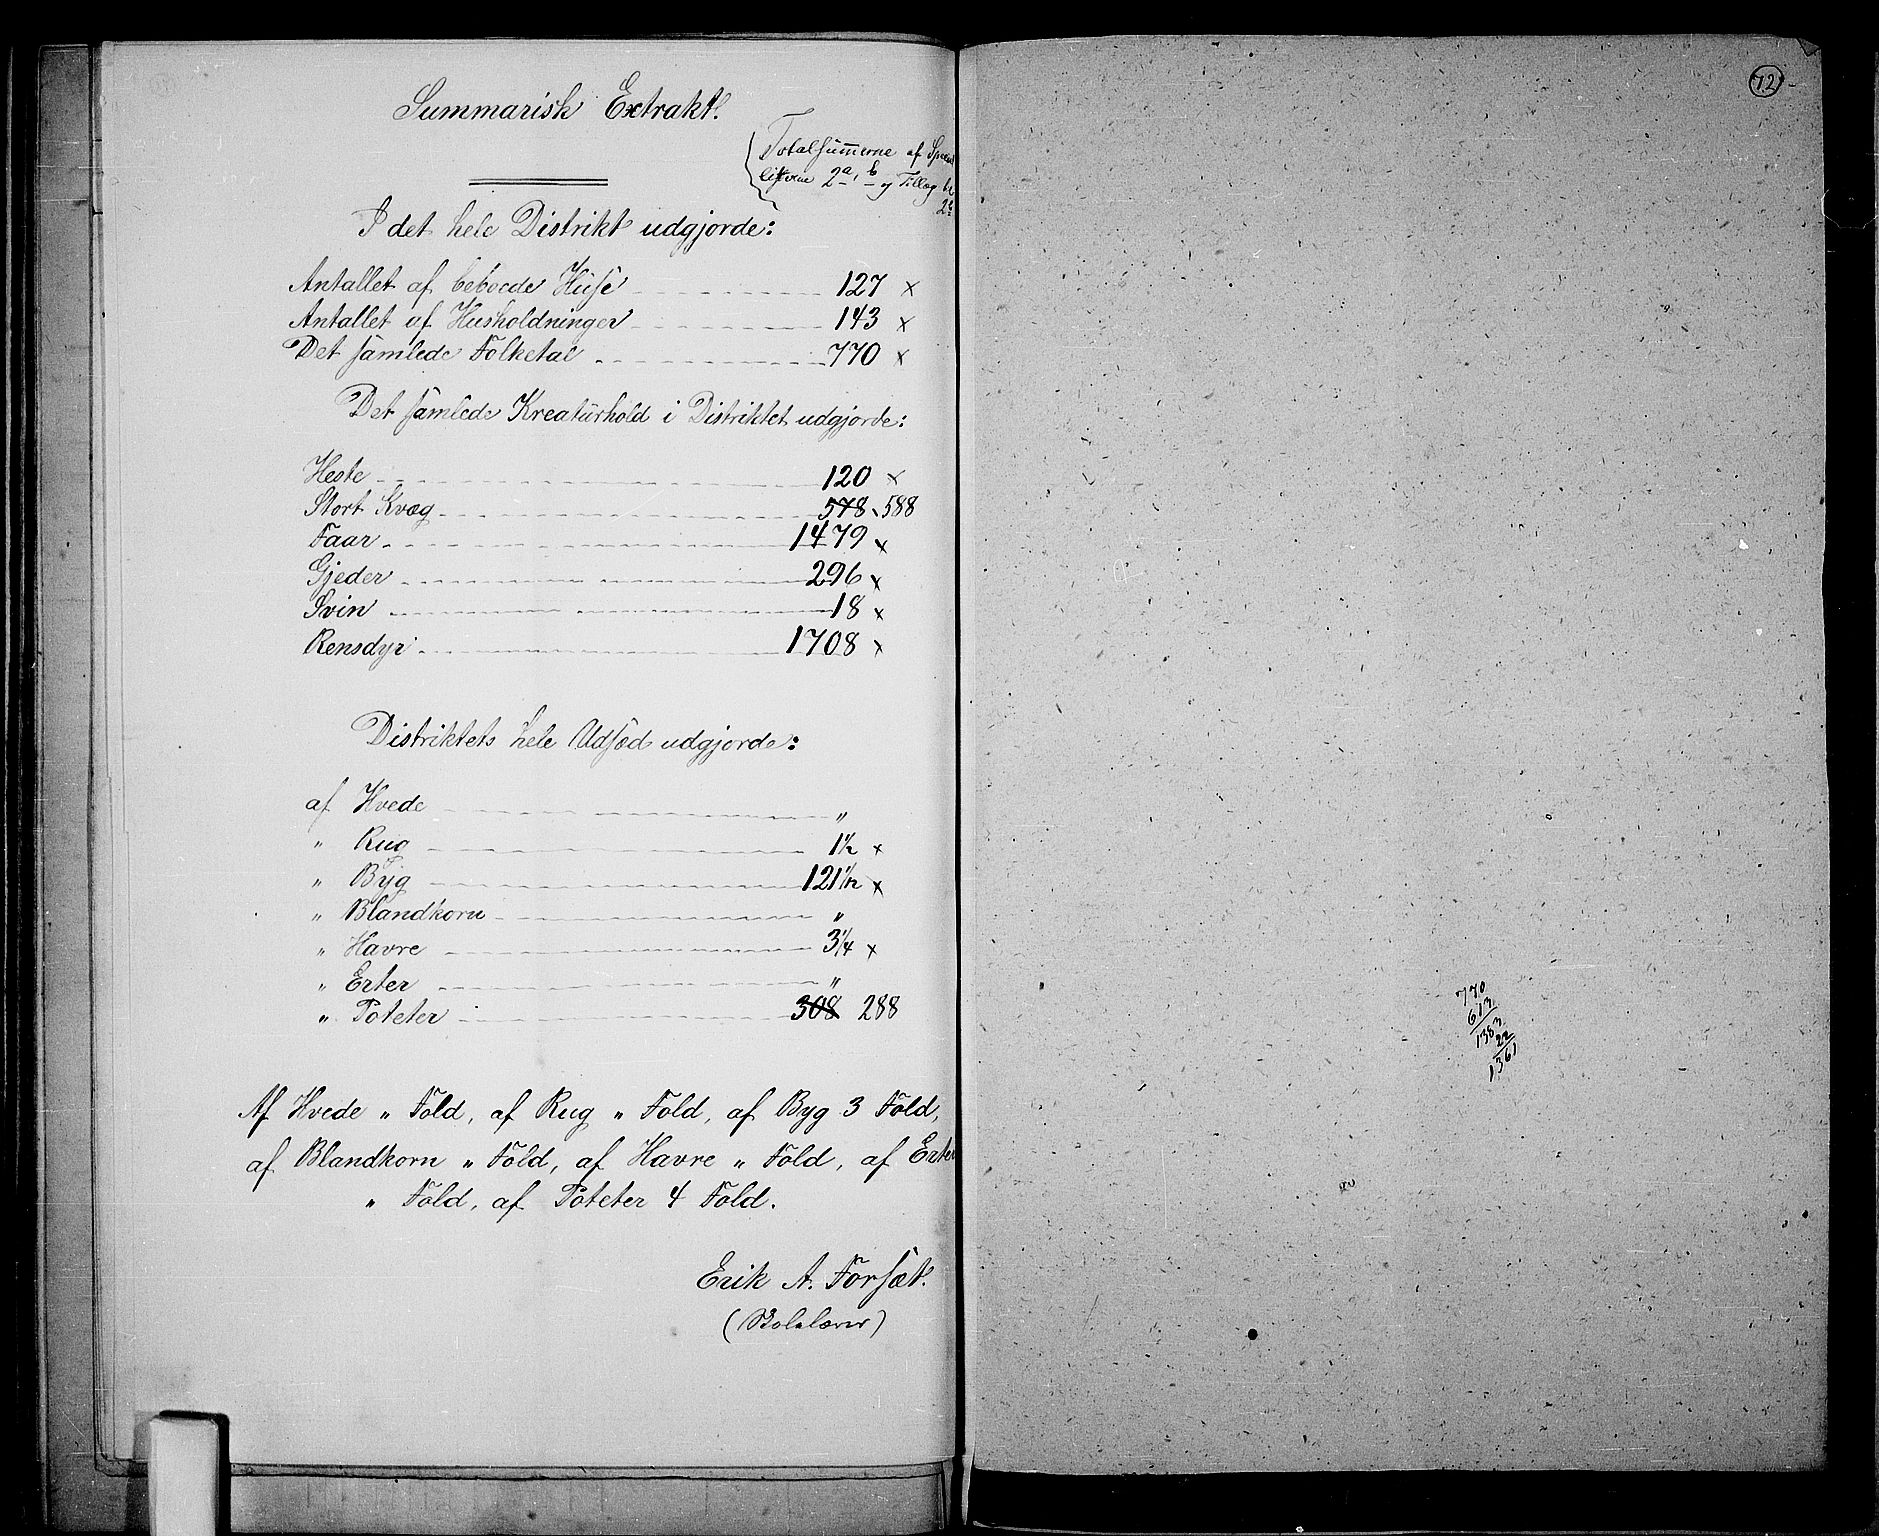 Summarisk Extrakt.
Totalsummerne af
listerne 2a, b og Tillæg
I det hele Distrikt udgjorde:
Antallet af beboede Huse 127 ×
Antallet af Husholdninger 143 ×
Det samlede Folketal 770 ×
Det samlede Kreaturhold i Distriktet udgjorde:
Heste 120 ×
Stort Kvæg 578 588
Faar 1479 ×
Gjeder 296 ×
Svin 18 ×
Rensdyr 1708 ×
Distriktets hele Udsæd udgjorde:
af Hvede "
" Rug 1½ ×
" Byg 121½ ×
" Blandkorn "
" Havre 3¼ ×
" Erter "
" Poteter 308 288
Af Hvede " Fold, af Rug " Fold, af Byg 3 Fold,
af Blandkorn " Fold, af Havre " Fold, af Erter
" Fold, af Poteter 4 Fold.
Erik A. Forsæt.
72
770
613
1383
22
1361